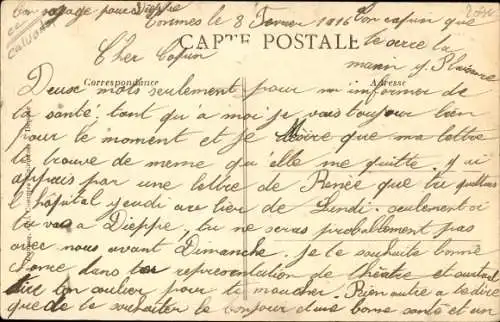 Bon voyage pour Dieppe
Calvados
Tormes le 8 Fevrier 1916 Ton copain que
te serre la
main
CARTE POSTALE
Cher Copin
Correspondance
Adresse
Deux mots seulement pour m informer de
la santé tant qu'à moi je vais toujour bien
pour le moment et je désire que ma lettre
te trouve de meme qu'elle me quitte. J ai
appris par une lettre de Renée que tu quittais
l'hôpital jeudi au lier de Lundi seulement si
tu vas a Dieppe, tu ne seras probablement pas
avec nous avant Dimanche, je te souhaite bonne
chance dans ta représentation de théâtre et surtout
ton coulier pour te moucher. Rien autre a te dire
que de te souhaiter le bonjour d'une bonne santé et un